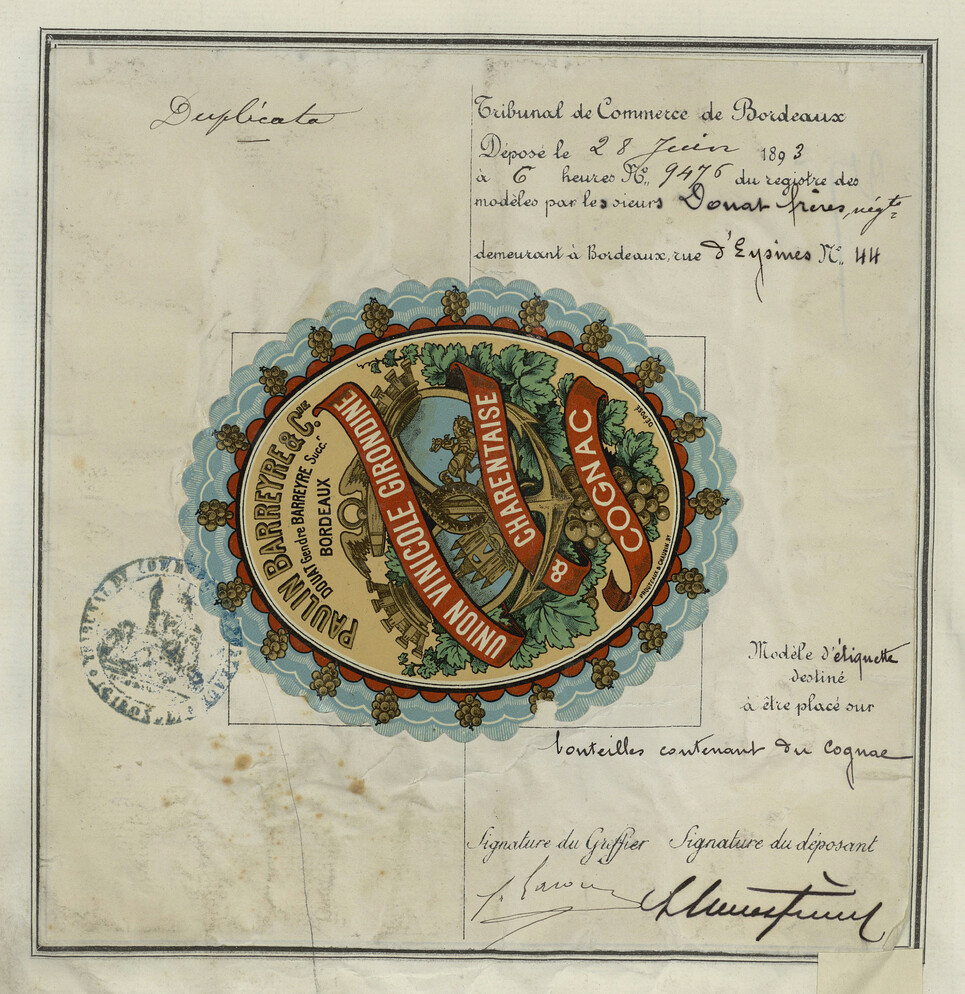 Duplicata
Tribunal de Commerce de Bordeaux
Déposé le 28 Juin 1893
à 6 heures N° 9476 du registre des
modèles par les sieurs Douat frères, négts
demeurant à Bordeaux, rue d'Eysines N° 44
PAULIN BARREYRE & Cie
DOUAT Gendre BARREYRE Succr
BORDEAUX
UNION VINICOLE GIRONDINE
& CHARENTAISE
COGNAC
DÉPOSÉ
BX
TRIBUNAL DE COMMERCE
Modèle d'étiquette
destiné
à être placé sur
bouteilles contenant du Cognac
Signature du Greffier Signature du déposant